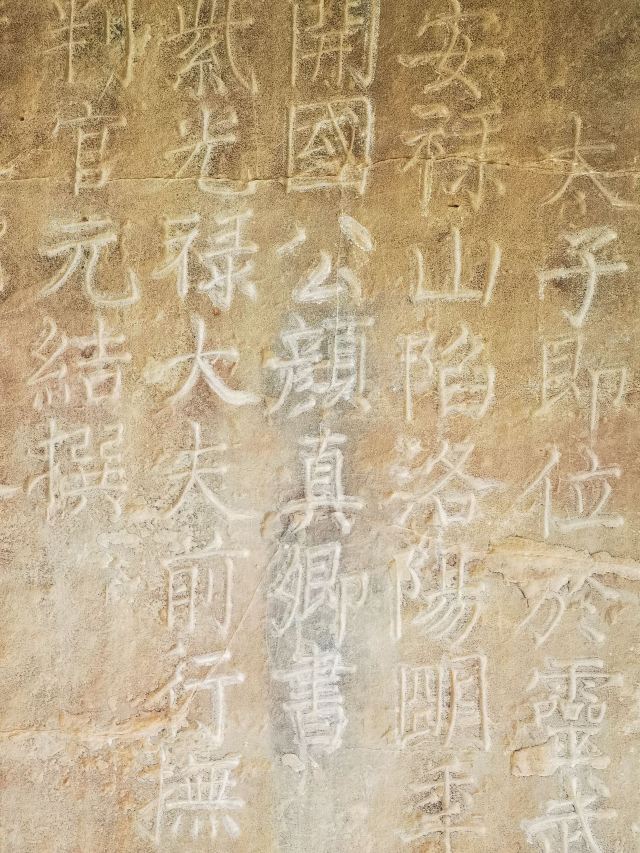 判官元結撰
紫光祿大夫前行撫
開國公顏真卿書
安祿山陷洛陽明年
太子即位於靈武